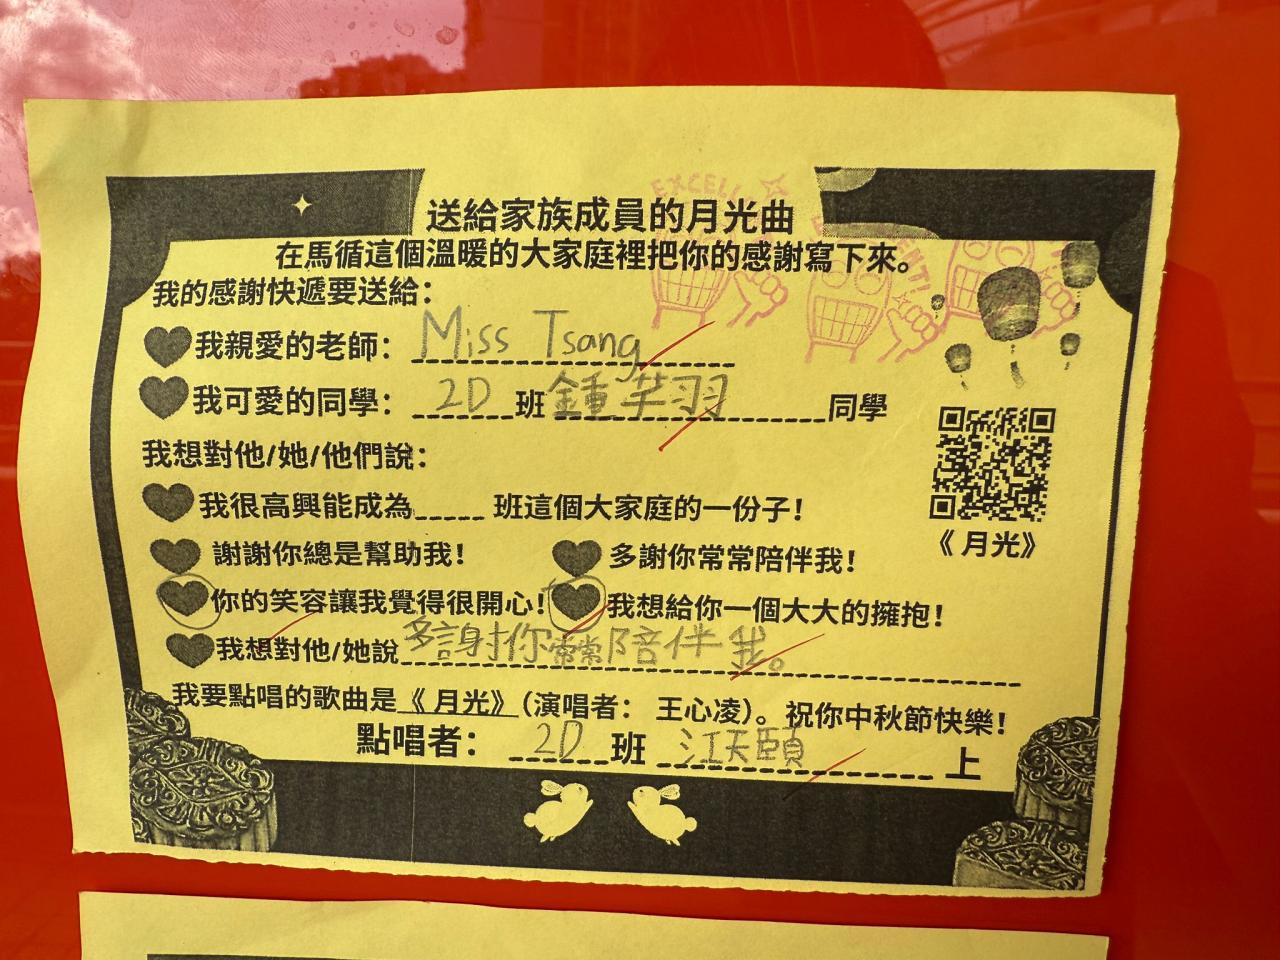 送給家族成員的月光曲
在馬循這個溫暖的大家庭裡把你的感謝寫下來。
我的感謝快遞要送給：
我親愛的老師： Miss Tsang
我可愛的同學： 2D 班 鍾芊羽 同學
我想對他/她/他們說：
我很高興能成為_____ 班這個大家庭的一份子！
謝謝你總是幫助我！ 多謝你常常陪伴我！
你的笑容讓我覺得很開心！ 我想給你一個大大的擁抱！
我想對他/她說 多謝你常常陪伴我。
我要點唱的歌曲是《月光》（演唱者： 王心凌）。祝你中秋節快樂！
點唱者： 2D 班 江天頤 上
《月光》
EXCELLENT!